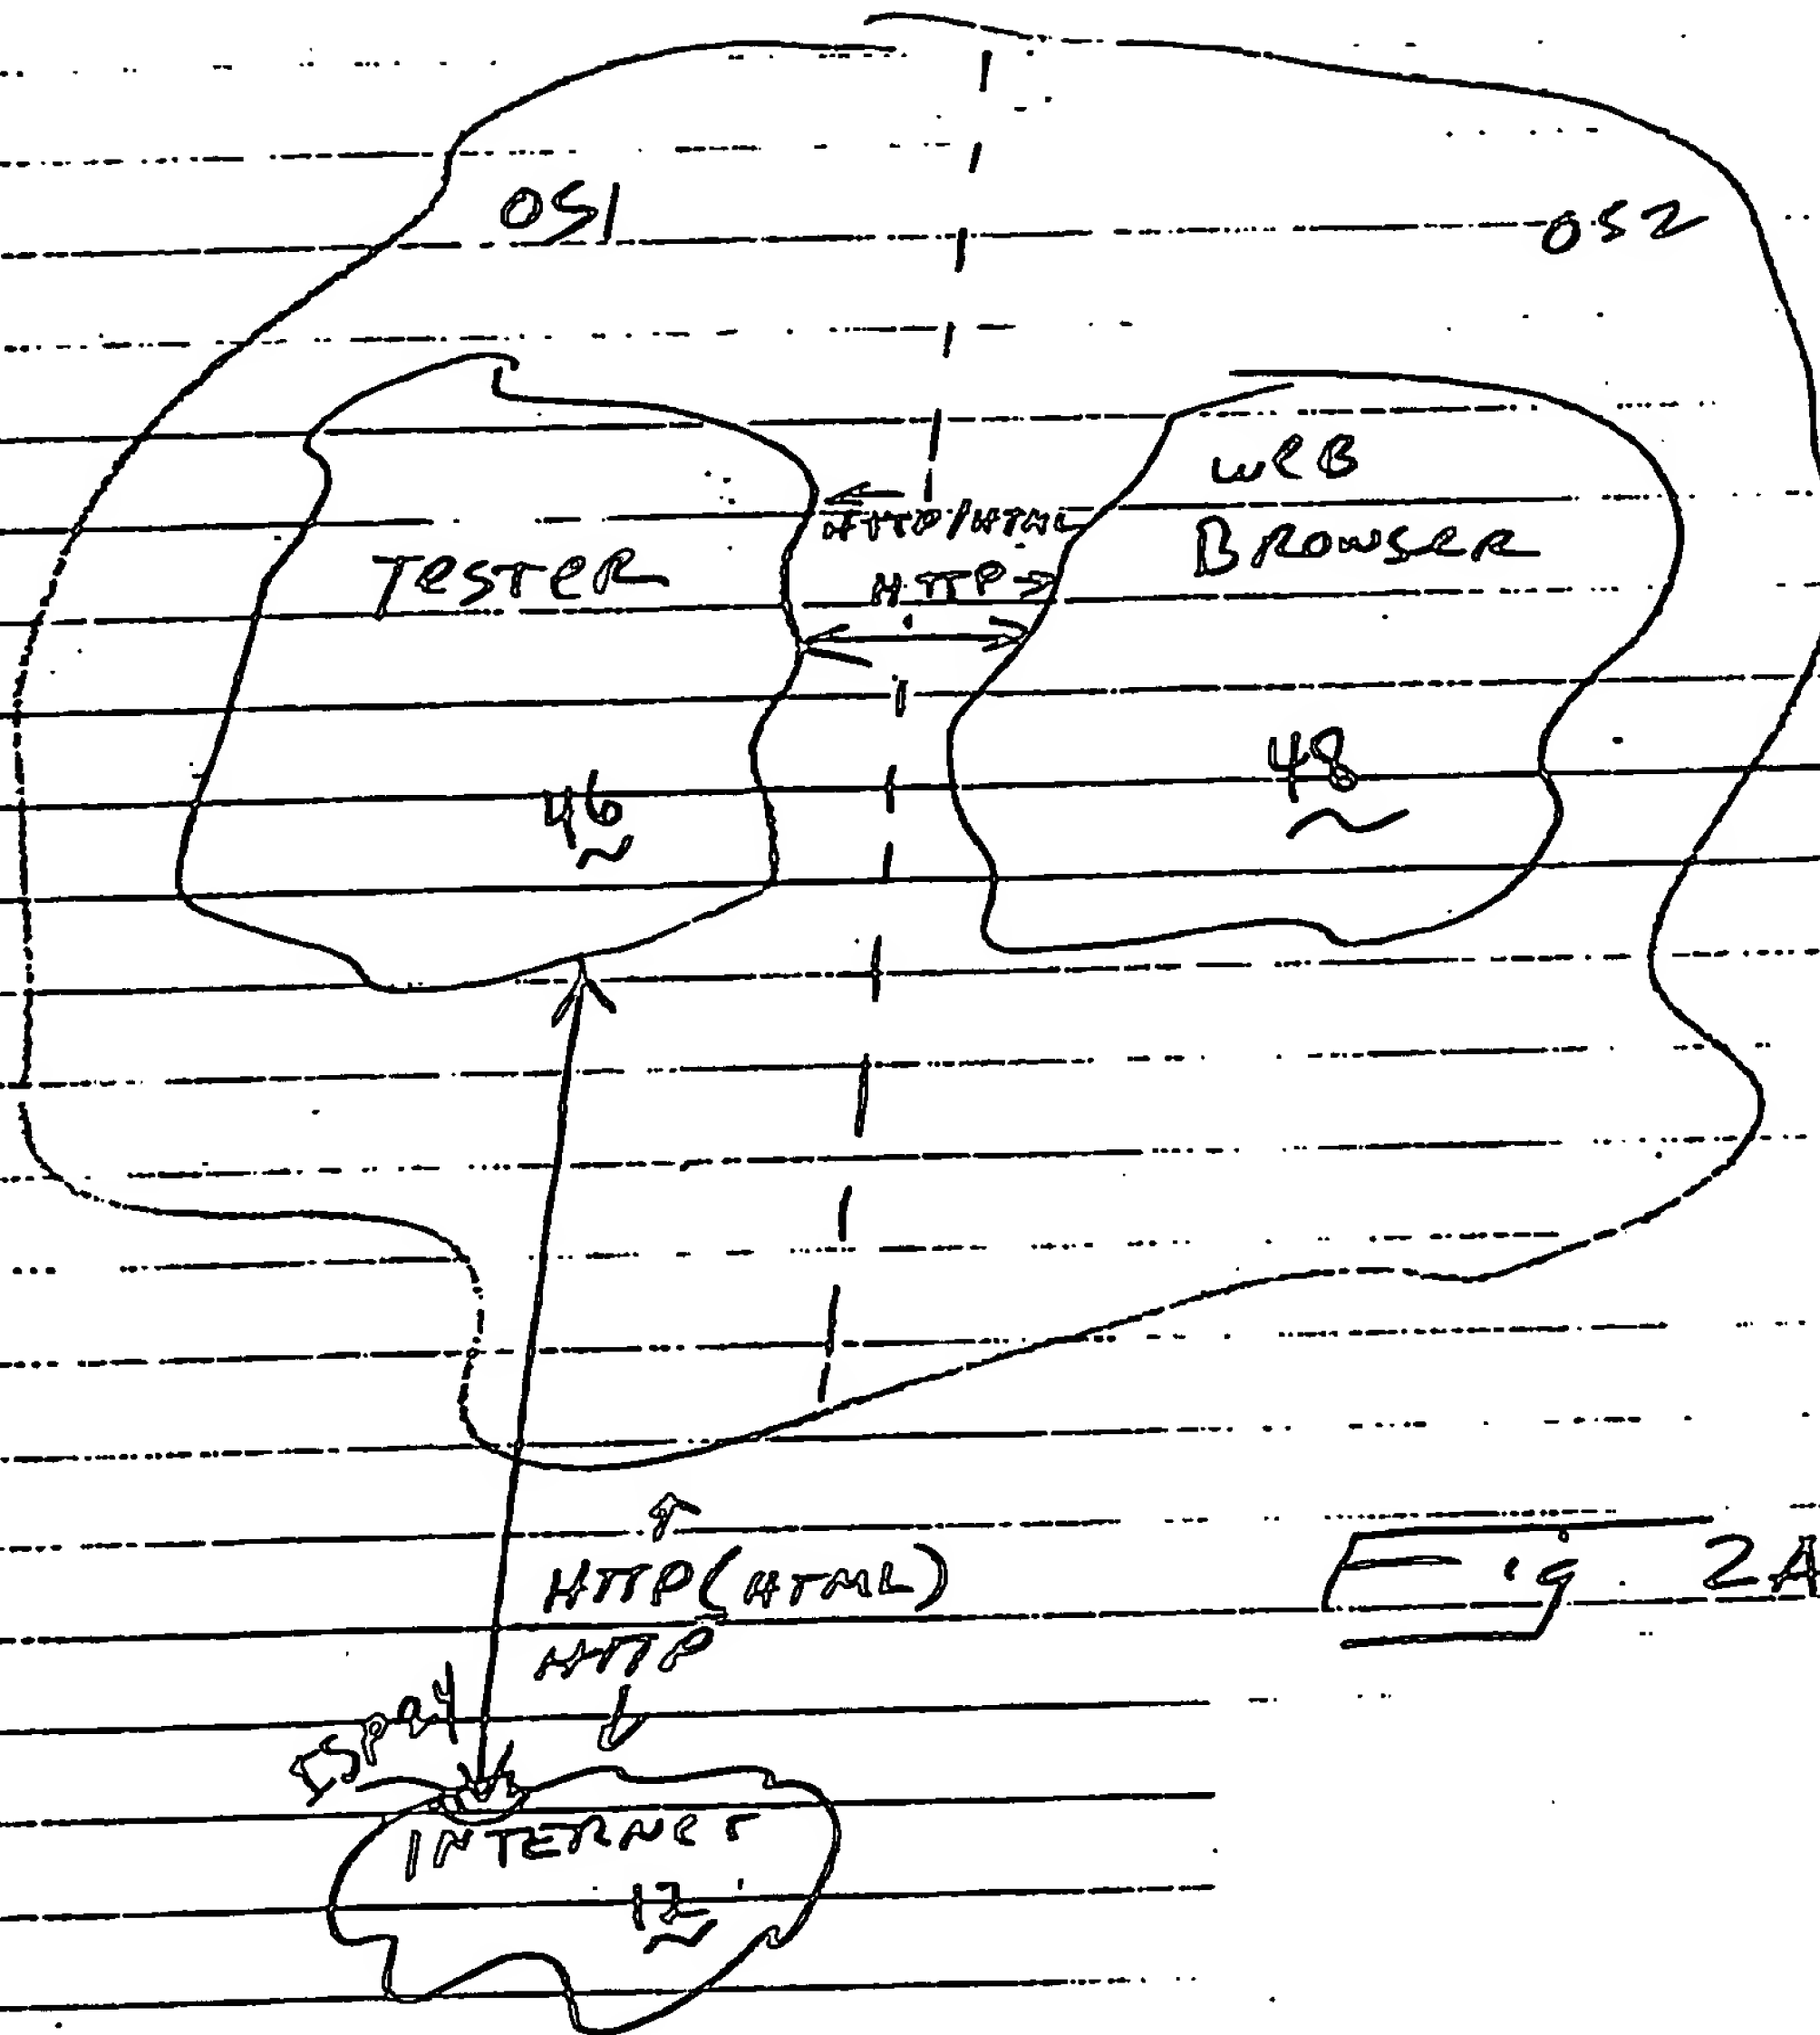 OS1
OS2
TESTER
46
HTTP/HTML
HTTP
WEB
BROWSER
48
HTTP(HTML)
HTTP
Fig 2A
INTERNET
12